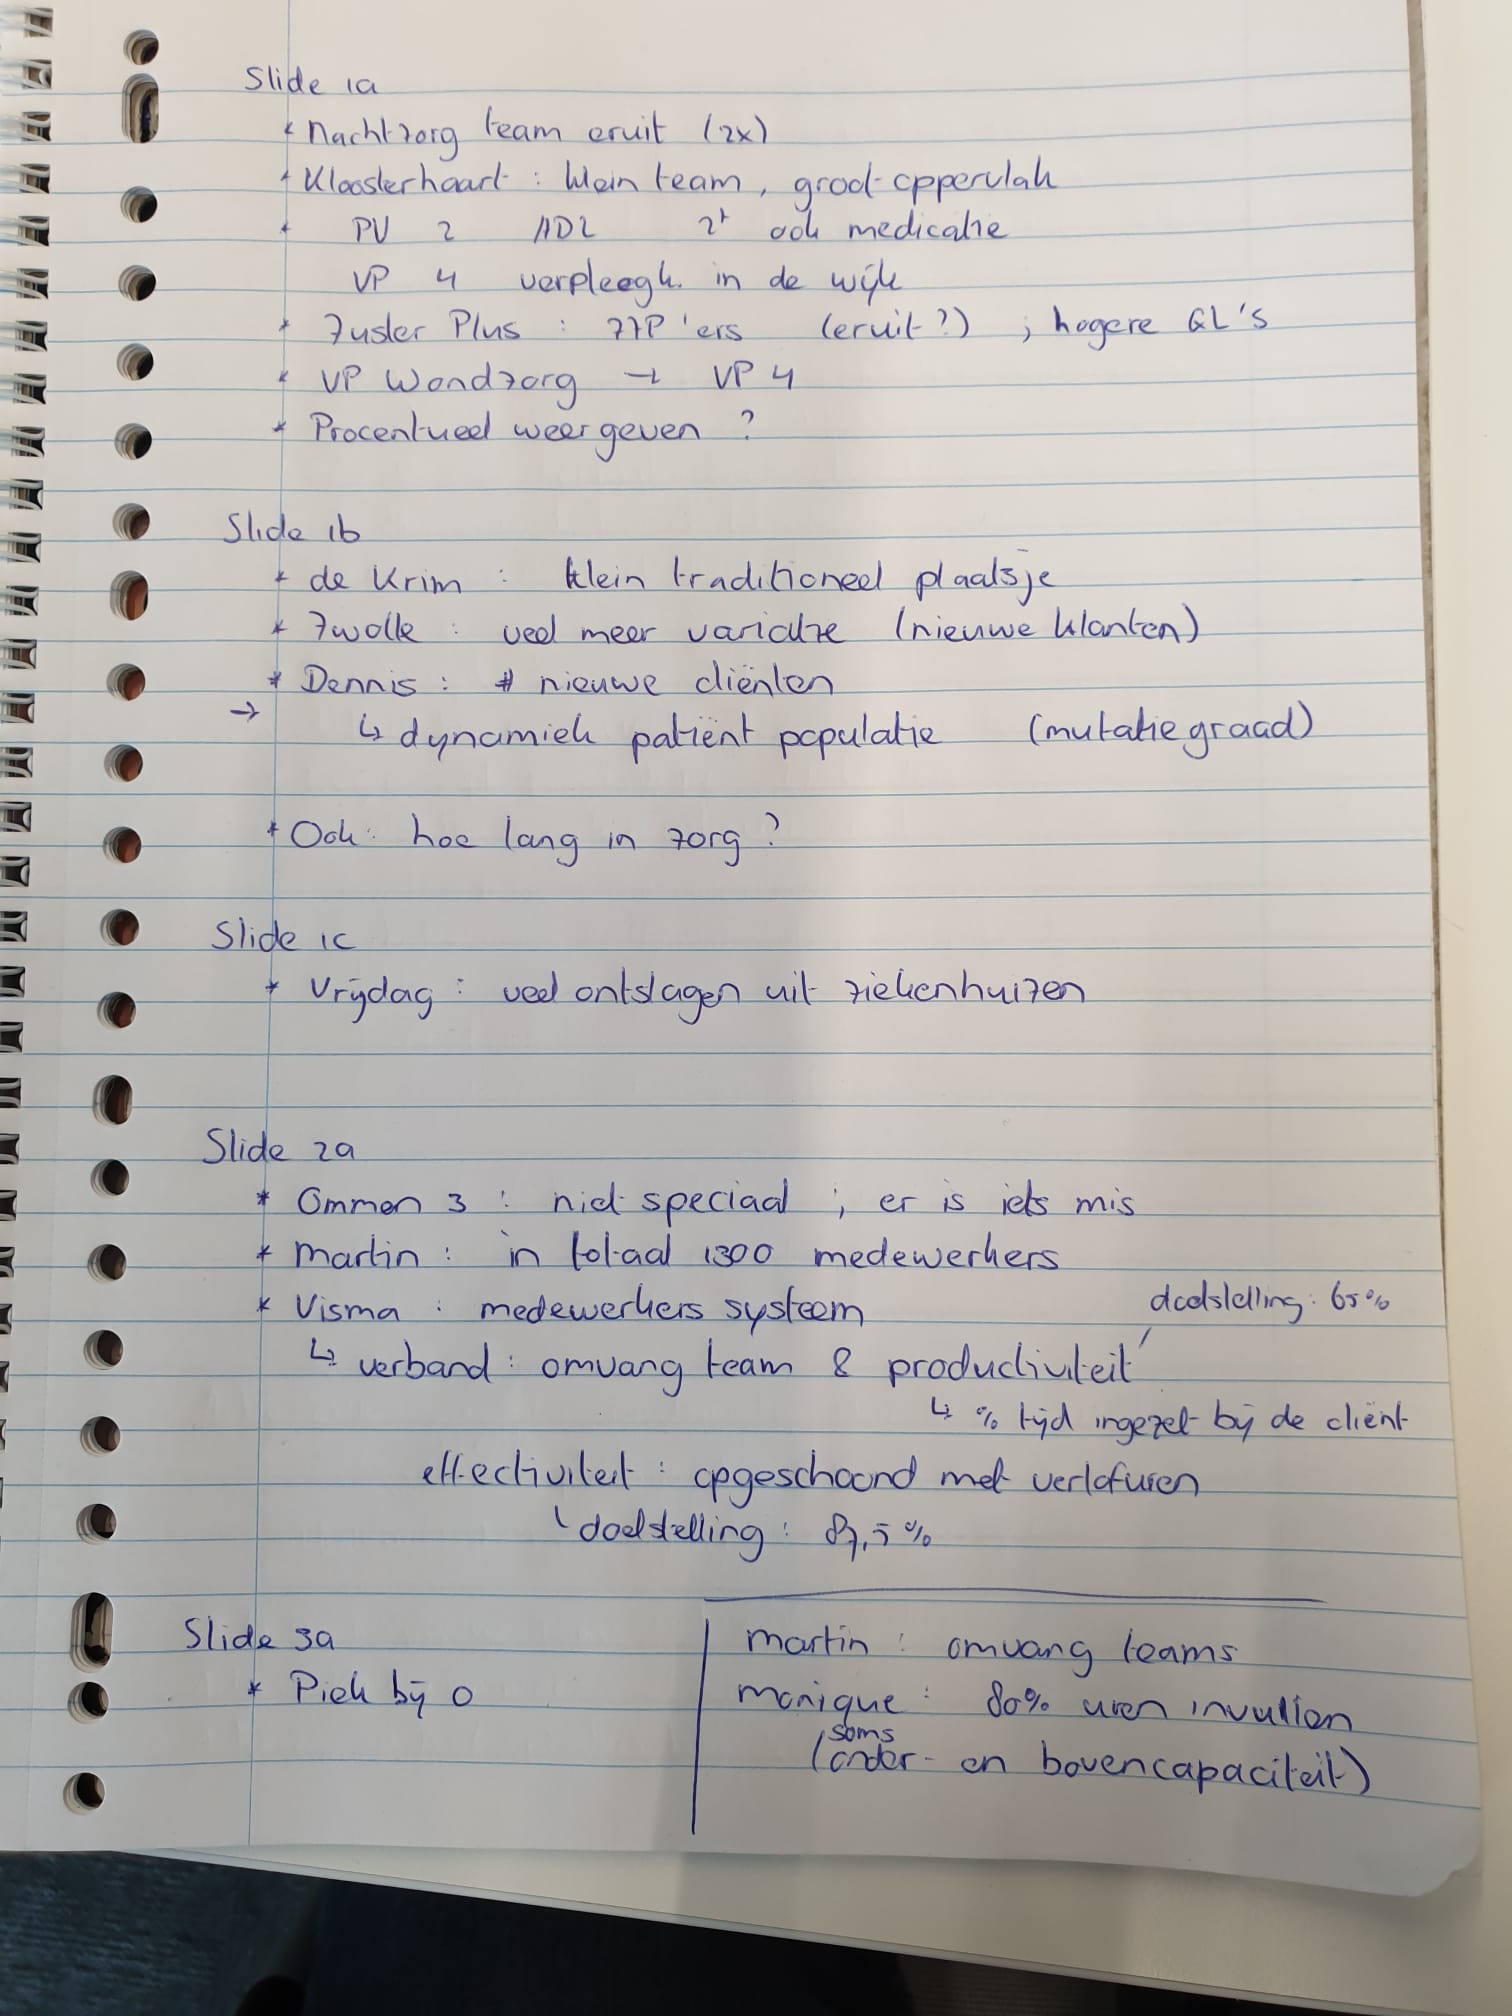 Slide 1a
* Nachtzorg team eruit (2x)
* Kloosterhaart : klein team, groot oppervlak
* PV 2 ADL 2+ ook medicatie
VP 4 verpleegk. in de wijk
* Zuster Plus : ZZP'ers (eruit?) ; hogere QL's
* VP Wondzorg → VP 4
* Procentueel weergeven ?
Slide 1b
* de Krim : klein traditioneel plaatsje
* Zwolle : veel meer variatie (nieuwe klanten)
* Dennis : # nieuwe cliënten
→ ↳ dynamiek patiënt populatie (mutatiegraad)
* Ook: hoe lang in zorg ?
Slide 1c
* Vrijdag : veel ontslagen uit ziekenhuizen
Slide 2a
* Ommen 3 : niet speciaal ; er is iets mis
* Martin : in totaal 1300 medewerkers
* Visma : medewerkers systeem
doelstelling: 65%
↳ verband : omvang team & productiviteit
↳ % tijd ingezet bij de cliënt
effectiviteit : opgeschoond met verlofuren
↳ doelstelling : 87,5 %
Slide 3a
* Piek bij 0
Martin : omvang teams
Monique : 80% uren invullen
soms
(onder- en bovencapaciteit)